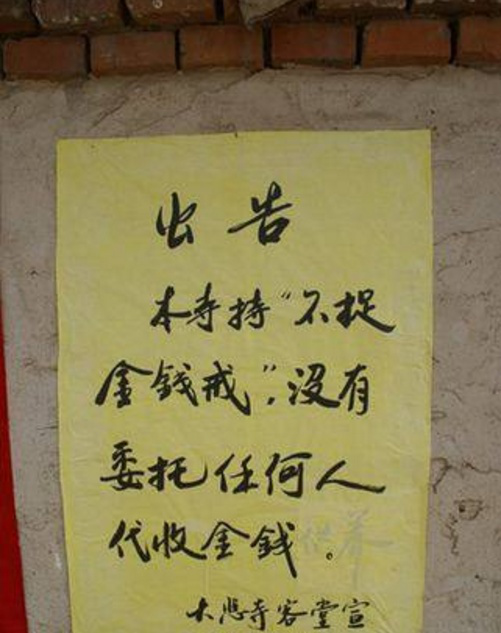 出告
本寺持“不捉
金錢戒”,没有
委托任何人
代收金錢。供养
大悲寺客堂宣